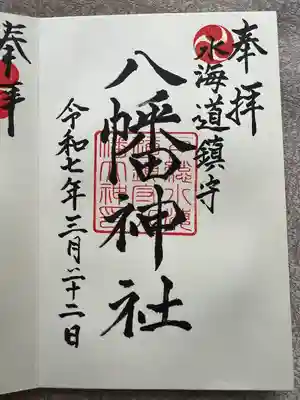 奉拝
水海道鎮守
八幡神社
令和七年三月二十二日